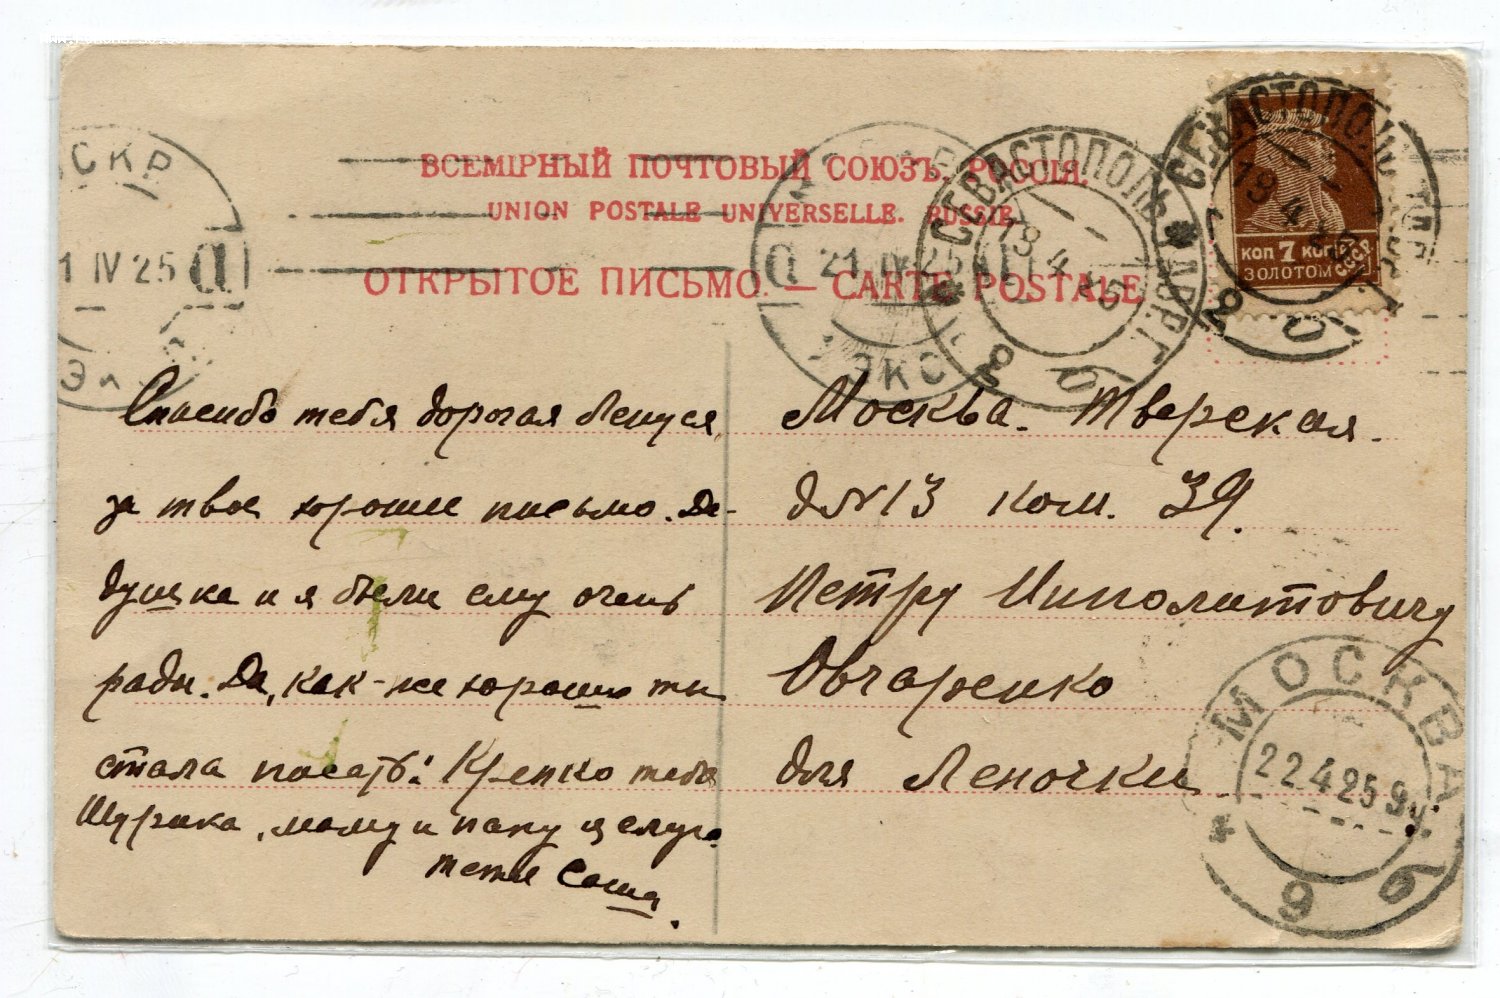 ВСЕМІРНЫЙ ПОЧТОВЫЙ СОЮЗЪ. РОССІЯ.
UNION POSTALE UNIVERSELLE. RUSSIE.
ОТКРЫТОЕ ПИСЬМО. — CARTE POSTALE
СЕВАСТОПОЛЬ
19 4 25
КОП 7 КОП
ЗОЛОТОМ
СССР
СЕВАСТОПОЛЬ
19 4 25
21 IV 25
ЭКС
1 IV 25
Спасибо тебя дорогая Ленуся,
за твое хорошее письмо. Де-
душка и я были ему очень
рады. Да, как-же хорошо ты
стала писать! Крепко тебя
Шурика, маму и папу целую.
тетя Саша.
Москва. Тверская.
д № 13 ком. 39.
Петру Ипполитовичу
Овчаренко
для Леночки
МОСКВА
22 4 25 9